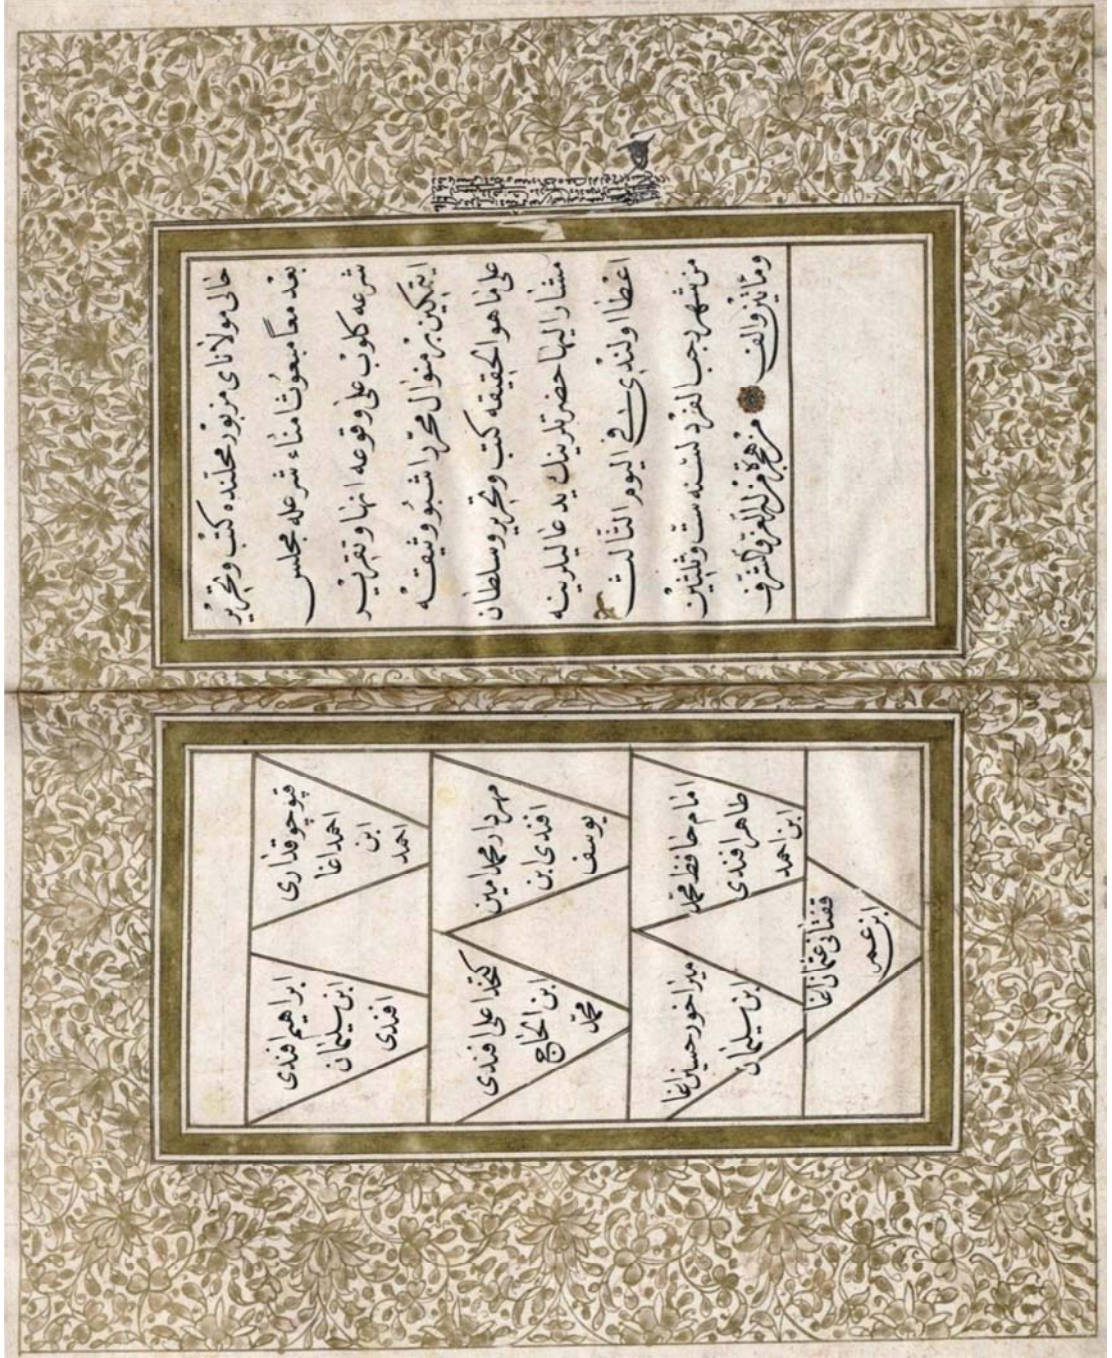 حالی مولانای مزبور محلنده كتب وتحریر
بعد معا مبعوثا مناء شرعله مجلس
شرعه كلوب علی وقوعه انها وتقریر
ایتمكین بر منوال محرر اشبو وثیقه
علی ما هو الحقیقه كتب وتحریر وسلطان
مشار الیها حضرتلرینك ید عالیلرینه
اعطا اولندی فی الیوم الثالث
من شهر رجب الفرد لسنه ست وثلثین
ومائتین والف
من هجرة من له العز والشرف
قپو چوقداری
احمد اغا
ابن
احمد
ابراهیم افندی
ابن سلیمان
افندی
مهردار محمد امین
افندی ابن
یوسف
كتخدا علی افندی
ابن الحاج
محمد
امام حافظ محمد
طاهر افندی
ابن احمد
میراخور حسین اغا
ابن سلیمان
قفتانی عثمان اغا
ابن عمر